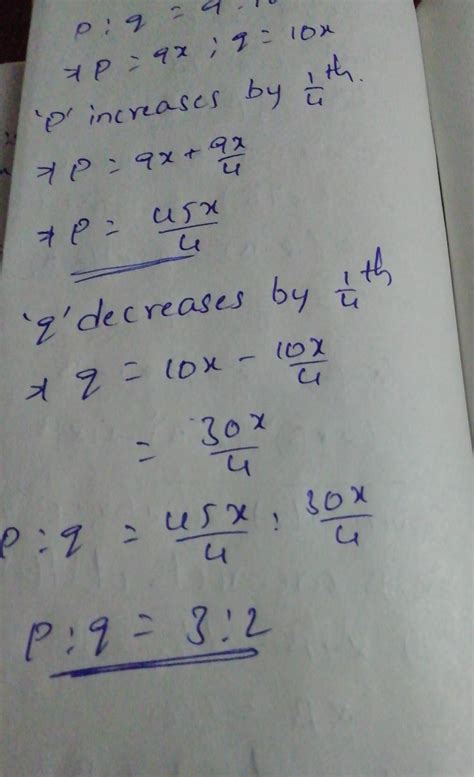 p : q = 9 : 10
⇒ p = 9x ; q = 10x
'p' increases by 1/4 th.
⇒ p = 9x + 9x/4
⇒ p = 45x/4
'q' decreases by 1/4 th
⇒ q = 10x - 10x/4
= 30x/4
p : q = 45x/4 : 30x/4
p : q = 3 : 2